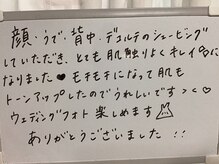 顔・うで・背中・デコルテのシェービング
していただき、とても肌触りよくキレイ肌に
なりました♥ モチモチになって肌も
トーンアップしたのでうれしいです＞＜♡
ウェディングフォト楽しめます
ありがとうございました!!